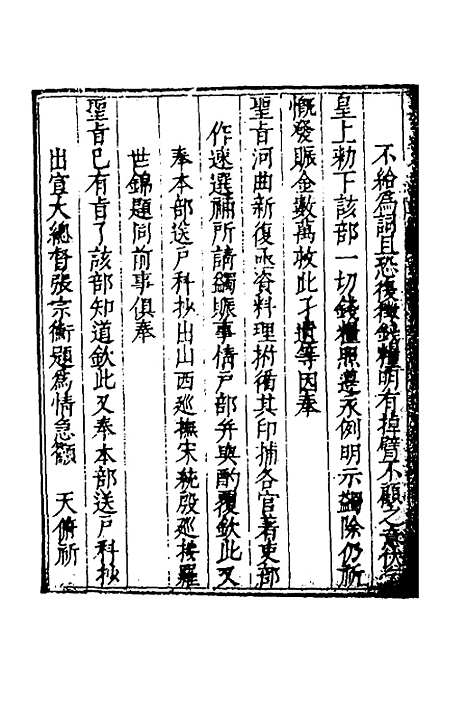 不給爲詞且恐復徵錢糧明有掉臂不顧之意伏
皇上勑下該部一切錢糧照遵永例明示蠲除仍祈
慨發賑金數萬救此孑遺等因奉
聖旨河曲新復亟資料理拊循其印捕各官著吏部
作速選補所請蠲賑事情户部并與酌覆欽此又
奉本部送户科抄出山西巡撫宋統殷巡按羅
世錦題同前事俱奉
聖旨已有旨了該部知道欽此又奉本部送户科抄
出宣大總督張宗衡題爲情急籲 天俯祈